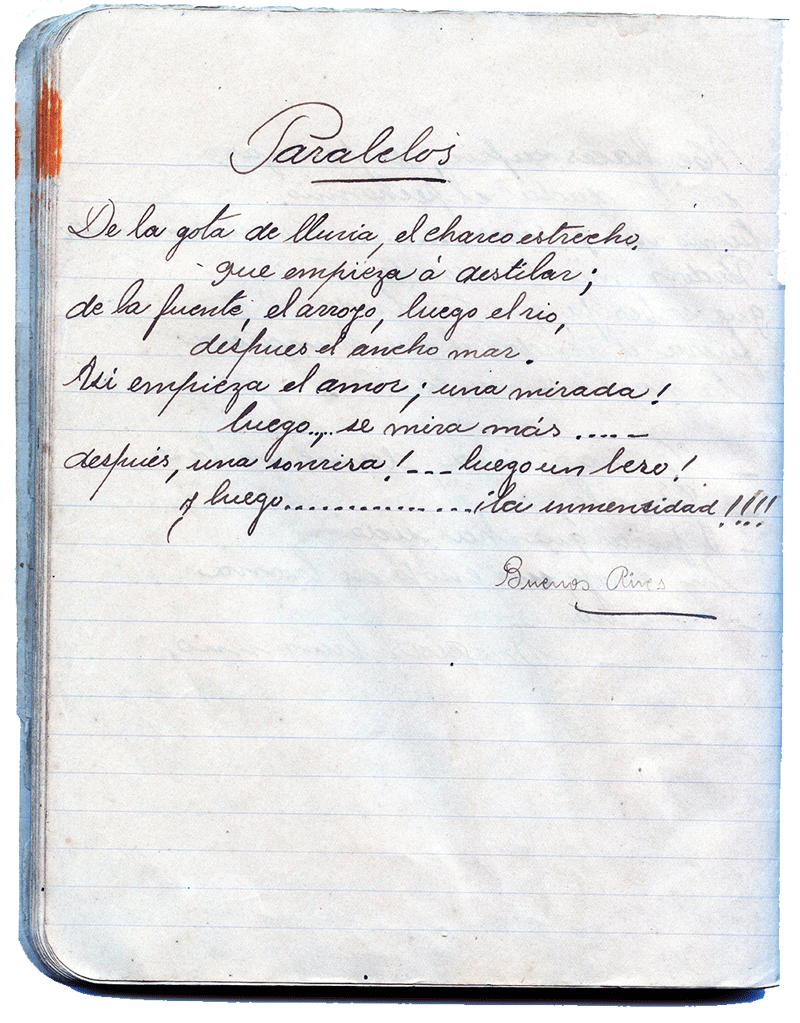 Paralelos
De la gota de lluvia, el charco estrecho,
que empieza á destilar;
de la fuente, el arroyo, luego el rio,
despues el ancho mar.
Asi empieza el amor; una mirada!
luego... se mira más .....
después, una sonrisa! ... luego un beso!
y luego............... ¡la inmensidad!!!!
Buenos Aires